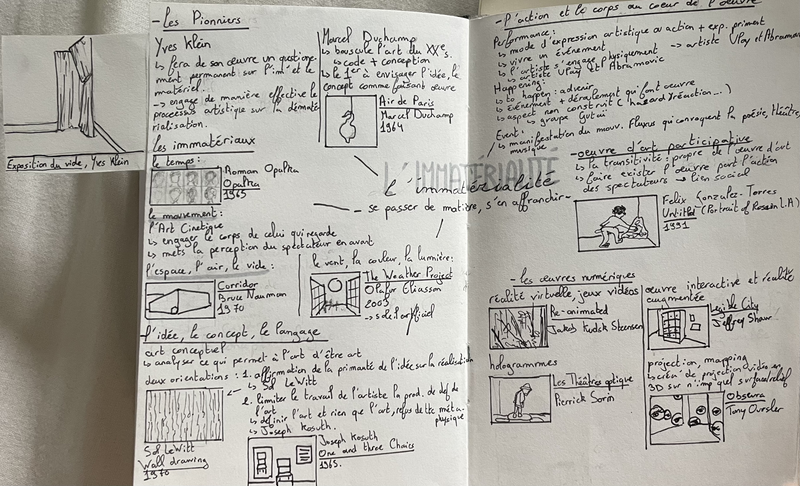 Exposition du vide, Yves Klein
- les Pionniers
Yves Klein
↳ fera de son œuvre un questionne-
ment permanent sur l'im et le
matériel.
→ engage de manière effective le
processus artistique sur la dématé
rialisation.
Marcel Duchamp
↳ bouscule l'art du XXe s.
↳ code + conception
↳ le 1er à envisager l'idée, le
concept comme faisant œuvre
Air de Paris
Marcel Duchamp
1964
les immatériaux
le temps:
Roman Opalka
Opalka
1965
le mouvement:
l'Art Cinetique
↳ engager le corps de celui qui regarde
↳ mets la perception du spectateur en avant
l'espace, l'air, le vide:
Corridor
Bruce Nauman
1970
le vent, la couleur, la lumière:
The Weather Project
Olafur Eliasson
2003
→ soleil artificiel
L'IMMATÉRIALITÉ
l'immatérialité
- se passer de matière, s'en affranchir -
l'idée, le concept, le langage
art conceptuel
↳ analyser ce qui permet à l'art d'être art
deux orientations: 1. affirmation de la primauté de l'idée sur la réalisation
↳ Sol LeWitt
2. limiter le travail de l'artiste la prod. de def de
l'art
↳ définir l'art et rien que l'art, refus de tte méta-
physique
↳ Joseph Kosuth.
Sol LeWitt
Wall drawing
1970
Joseph Kosuth
One and three Chairs
1965.
- l'action et le corps au cœur de l'œuvre
Performance:
↳ mode d'expression artistique ou action + exp. priment
↳ vivre un événement
↳ l'artiste s'engage physiquement
→ artiste Ulay et Abramovic
Happening:
↳ to happen: advenir
↳ événement + déroulement qui font œuvre
↳ aspect non construit (hasard, réaction...)
↳ groupe Gutaï
Event:
↳ manifestation du mouv. Fluxus qui convoquent la poésie, théâtre,
musique
- œuvre d'art participative
↳ la transitivité: propre de l'œuvre d'art
↳ faire exister l'œuvre part l'action
des spectateurs → lien social
Felix Gonzalez-Torres
Untitled (Portrait of Ross in L.A)
1991
- les œuvres numériques
réalité virtuelle, jeux vidéos
Re-animated
Jakob Kudsk Steensen
œuvre interactive et réalité
augmentée
Legible City
Jeffrey Shaw
hologrammes
Les Théâtres optique
Pierrick Sorin
projection, mapping
3D sur n'impt quel surface/relief
Obscura
Tony Oursler